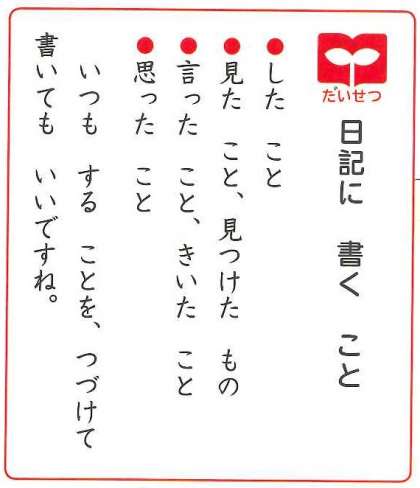 だいせつ
日記に　書く　こと
●した　こと
●見た　こと、見つけた　もの
●言った　こと、きいた　こと
●思った　こと
いつも　する　ことを、つづけて
書いても　いいですね。